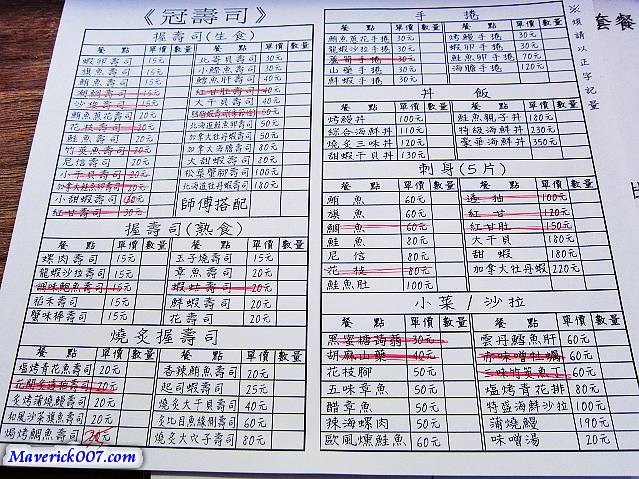 《冠壽司》
握壽司(生食)
餐 點 單價 數量 餐 點 單價 數量
蝦卵壽司 15元 北寄貝壽司 30元
旗魚壽司 15元 小鰶魚壽司 30元
鮪魚壽司 15元 鮭魚肝壽司 40元
鯛魚壽司 15元 紅甘肚壽司 40元
沙垠壽司 15元 大干貝壽司 40元
鮪魚蔥花壽司 20元 50元
花枝壽司 20元 北海道鮭魚卵壽司 50元
鮭魚壽司 20元 加拿大牡丹蝦壽司 80元
竹莢魚壽司 20元 加拿大海膽壽司 80元
尼信壽司 20元 大甜蝦壽司 80元
小干貝壽司 20元 松葉蟹腳壽司 100元
加拿大鮭魚卵壽司 20元 北海道牡丹蝦壽司 180元
小甜蝦壽司 元 師傅搭配
紅甘壽司 30元
握壽司(熟食)
餐 點 單價 數量 餐 點 單價 數量
螺肉壽司 15元 玉子燒壽司 15元
龍蝦沙拉壽司 15元 章魚壽司 20元
調味鮑魚壽司 15元 蝦蛄壽司 20元
稻禾壽司 15元 鮮蝦壽司 20元
蟹味棒壽司 15元 花壽司 20元
燒炙握壽司
餐 點 單價 數量 餐 點 單價 數量
塩烤青花魚壽司 20元 香辣鮪魚壽司 20元
20元 起司蝦壽司 25元
炙烤蒲燒鰻壽司 20元 燒炙大干貝壽司 40元
和風沙茶旗魚壽司 20元 炙比目魚緣側壽司 60元
焗烤鯛魚壽司 元 燒炙大穴子壽司 80元
手捲
餐 點 單價 數量 餐 點 單價 數量
鮪魚蔥花手捲 30元 烤鰻手捲 30元
龍蝦沙拉手捲 30元 蝦卵手捲 30元
蘆筍手捲 30元 鮭魚卵手捲 70元
山藥手捲 30元 海膽手捲 120元
鮮蝦手捲 30元
丼飯
餐 點 單價 數量 餐 點 單價 數量
烤鰻丼 100元 鮭魚親子丼 180元
綜合海鮮丼 110元 特級海鮮丼 230元
燒炙三味丼 120元 豪華海鮮丼 350元
甜蝦干貝丼 130元
刺身(5片)
餐 點 單價 數量 餐 點 單價 數量
鮪魚 60元 透抽 100元
旗魚 60元 紅甘 120元
鯛魚 60元 紅甘肚 150元
鮭魚 80元 大干貝 180元
尼信 60元 甜蝦 180元
花枝 80元 加拿大牡丹蝦 220元
鮭魚肚 100元
小菜/沙拉
餐 點 單價 數量 餐 點 單價 數量
黑蜜糖蒟蒻 30元 雲丹鱈魚肝 60元
胡麻山藥 40元 赤味噌牡蠣 60元
花枝腳 50元 60元
五味章魚 50元 塩烤青花排 80元
醋章魚 50元 特盛海鮮沙拉 100元
辣海螺肉 50元 蒲燒鰻 190元
歐風燻鮭魚 60元 味噌湯 20元
※煩請以正字記量
套餐
Maverick007.com